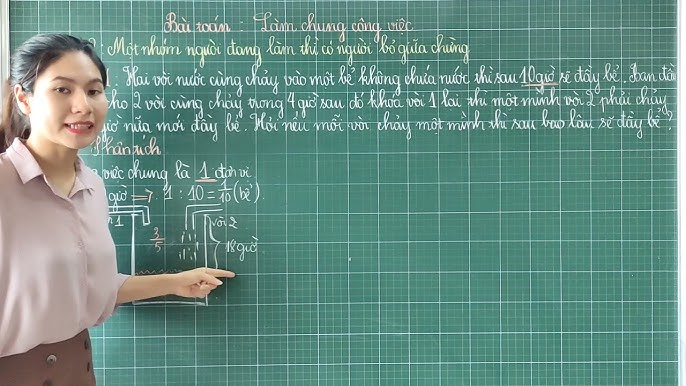 Bài toán : Làm chung công việc
: Một nhóm người đang làm thì có người bỏ giữa chừng
: Hai vòi nước cùng chảy vào một bể không chứa nước thì sau 10 giờ sẽ đầy bể. Ban đầu
cho 2 vòi cùng chảy trong 4 giờ sau đó khóa vòi 1 lại thì một mình vòi 2 phải chảy
giờ nữa mới đầy bể. Hỏi nếu mỗi vòi chảy một mình thì sau bao lâu sẽ đầy bể ?
Phân tích
việc chung là 1 đơn vị
giờ ⇒ 1 : 10 = 1/10 (bể).
1
vòi 2
3/5
18 giờ